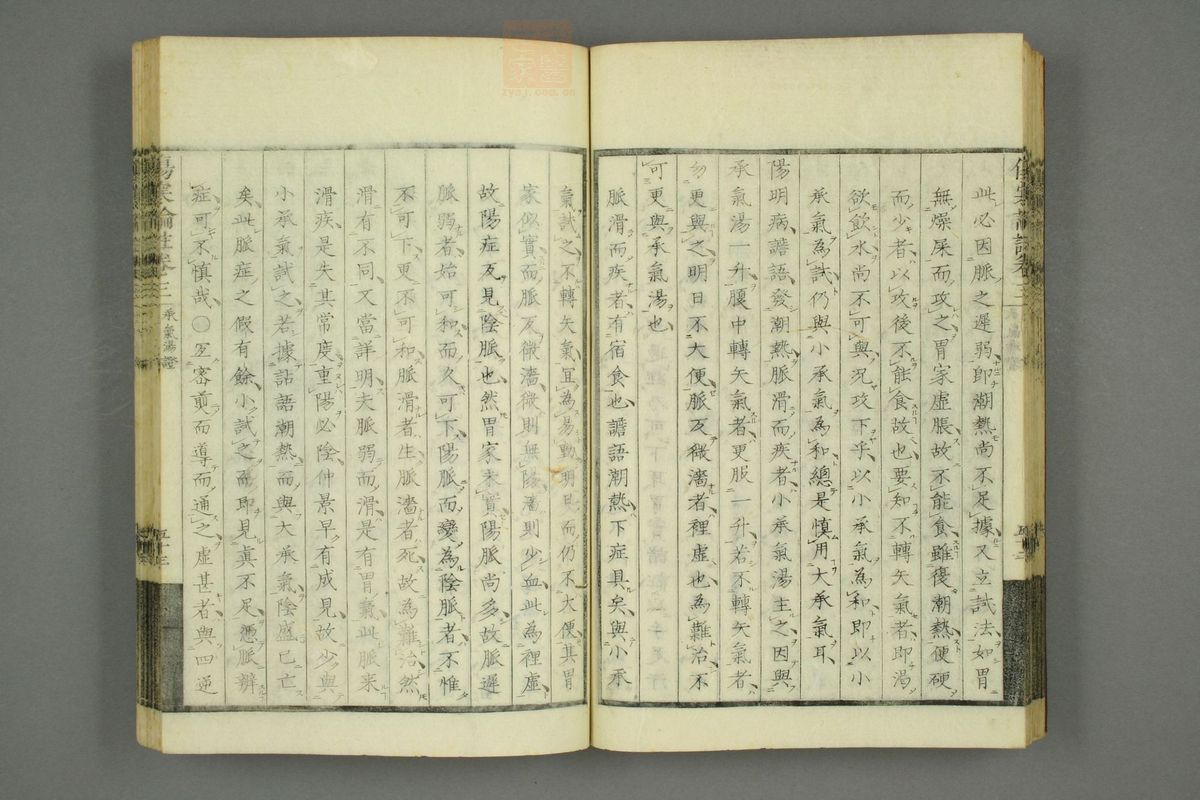 此必因脈之遲弱即潮熱尚不足據又立試法如胃
無燥屎而攻之胃家虛脹故不能食雖復潮熱便硬
而少者以攻後不能食故也要知不轉矢氣者即渴
欲飲水尚不可與況攻下乎以小承氣為和即以小
承氣為試仍與小承氣為和總是慎用大承氣耳
陽明病譫語發潮熱脈滑而疾者小承氣湯主之因與
承氣湯一升腹中轉矢氣者更服一升若不轉矢氣者
勿更與之明日不大便脈反微濇者裡虛也為難治不
可更與承氣湯也
脈滑而疾者有宿食也譫語潮熱下症具矣與小承
氣試之不轉矢氣宜為易動明日而仍不大便其胃
家似實而脈反微濇微則無陽濇則少血此為裡虛
故陽症反見陰脈也然胃家未實陽脈尚多故脈遲
脈弱者始可和而久可下陽脈而變為陰脈者不惟
不可下更不可和脈滑者生脈濇者死故為難治然
滑有不同又當詳明夫脈弱而滑是有胃氣此脈来
滑疾是失其常度重陽必陰仲景早有成見故少與
小承氣試之若據譫語潮熱而與大承氣陰盛已亡
矣此脈症之假有餘小試之而即見真不足憑脈辨
症可不慎哉○宜蜜煎而導而通之虛甚者與四逆
傷寒論註卷三
承氣湯證
五十三